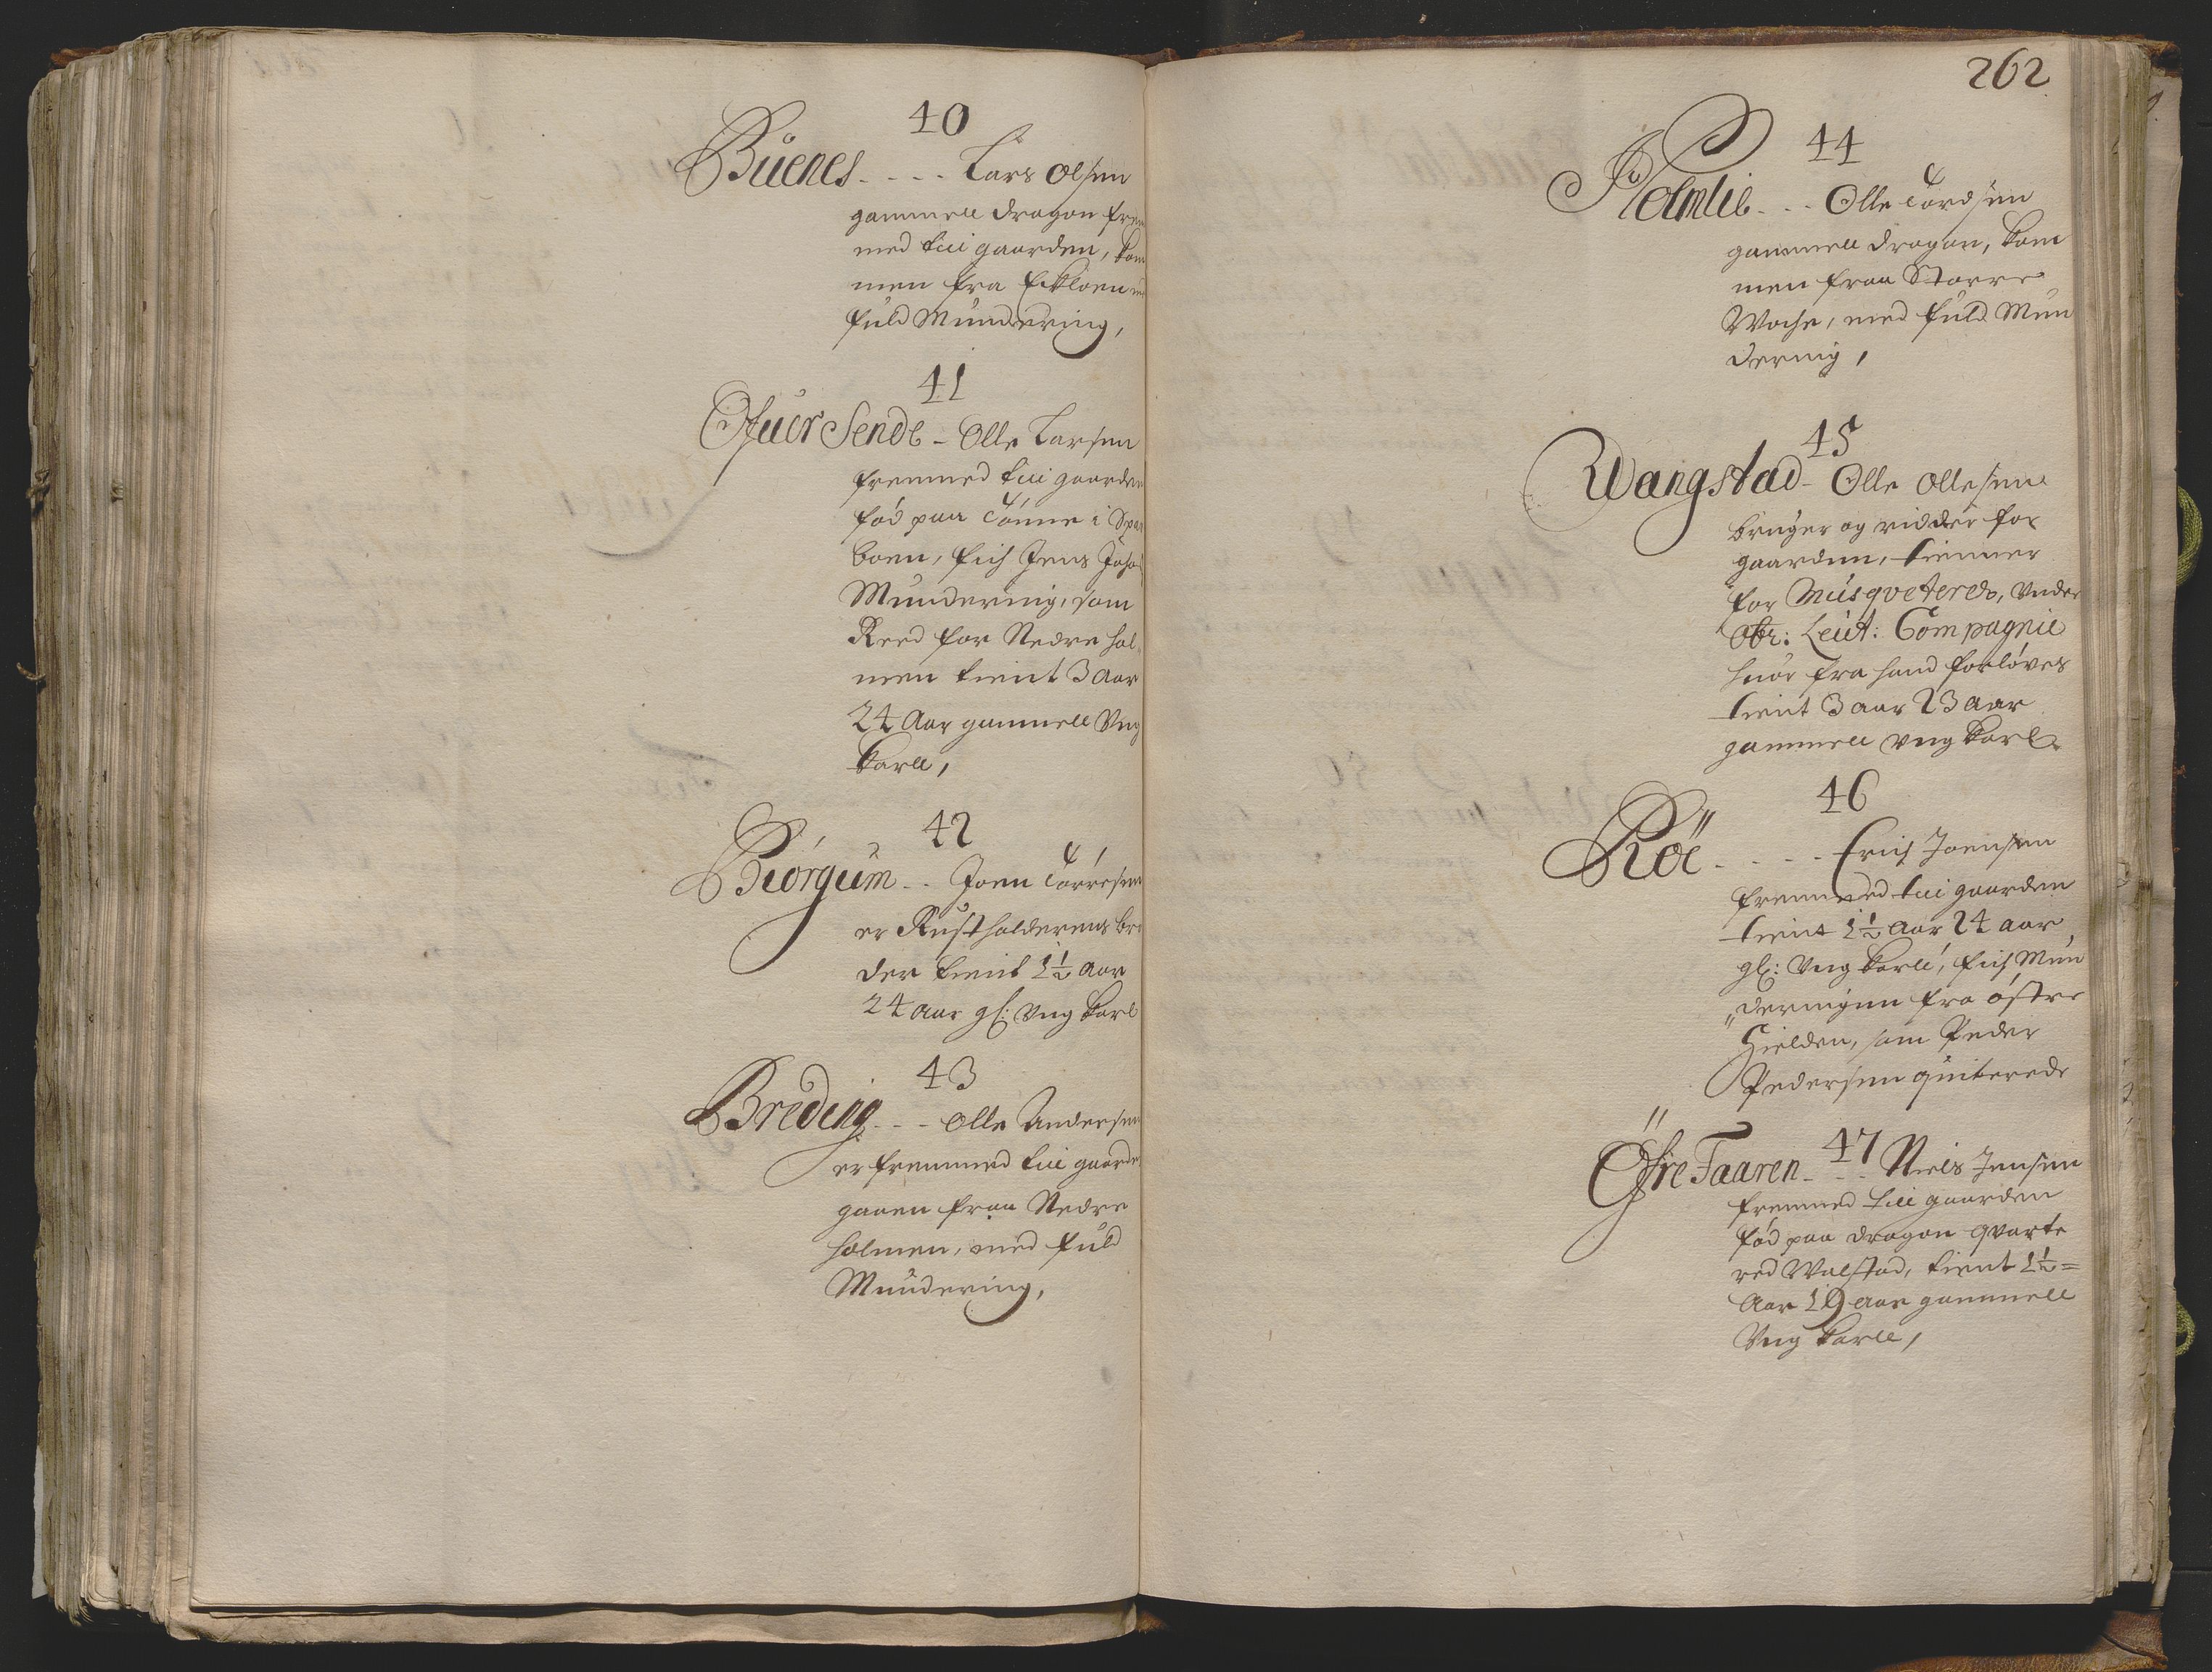 40
Büenes - - - - Lars Olsen
gammell dragon frem
med till gaarden, kom
men fra Eckloen
fuld Mundering,
41
Ofuer Sende - Olle Larsen
fremmed till gaarden
fød paa Tønne i Spar
boen, fich Jens
Mundering, som
Reed for Nedre hol
men tient 3 Aar
24 Aar gammell Vng
karll,
42
Biórgüm - - Joen Tørresen
er Rustholderens bro
der tient 1½ Aar
24 aar gl: Vng karl
43
Breding - - - Olle Andersen
er fremmed till gaarde
gaaen fraa Nedre
holmen, med fuld
Mundering,
262
44
Holmlie - - - Olle Tordsen
gammell dragon, kom
men fraa Storre
Woche, med fuld Mun
dering,
45
Wangstad - Olle Ollesen
bruger og ridder for
gaarden, tienner
for Müsqveterer, Vnder
Obr: Leüt: Compagnie
huor fra hand forløves
tient 3 aar 23 aar
gammell Vng karl
46
Röe - - - - Erich Joensen
fremmed till gaarden
tient 1½ Aar 24 aar
gl: Vng karll, fich Mun
deringen fra østre
Hielden, som Peder
Pedersen quiterede
47
Öfre Taaren - - - Niels Jensen
fremmed till gaarden
fød paa dragon qvarte
red Walstad, tient 1½ =
Aar 19 aar gammell
Vng karll,